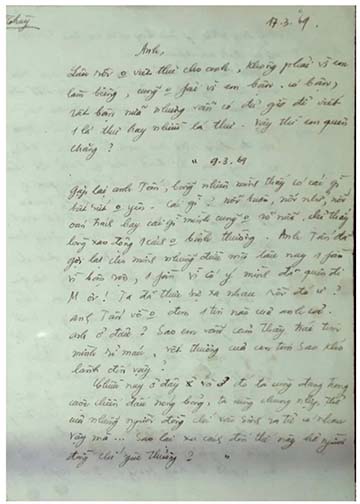 17.3.69.
Anh,
Lâu rồi o viết thư cho anh, không phải vì em
làm biếng, cũng o phải vì em bận. có bận,
rất bận nữa nhưng vẫn có đủ giờ để viết
1 lá thư hay nhiều lá thư. vậy thì em quên
chăng?
" 9.3.69
Gặp lại anh Tấn, bỗng nhiên mình thấy có cái gì
o yên. cái gì? nỗi buồn, nỗi nhớ, nỗi
oán hay cái gì mình cũng o rõ nữa, chỉ thấy
lòng xao động 1 cách o bình thường. Anh Tấn đã
gợi lại cho mình những điều mà lâu nay 1 phần
vì bận, 1 phần vì cố ý mình đã quên đi
M ơi! Ta đã thực sự xa nhau rồi đó ư?
Anh Tấn về o đem 1 tin nào của anh cả.
anh ở đâu? Sao em vẫn cảm thấy trái tim
mình rỉ máu, vết thương của con tim sao khó
lành đến vậy?
Chiều nay ở đây ta cùng đứng trong
cuộc chiến đấu nóng bỏng, ta cùng chung
của những người đồng chí sống ra tử có nhau
vậy mà ... sao lại xa cách đến thế này hở người
đồng chí yêu thương?